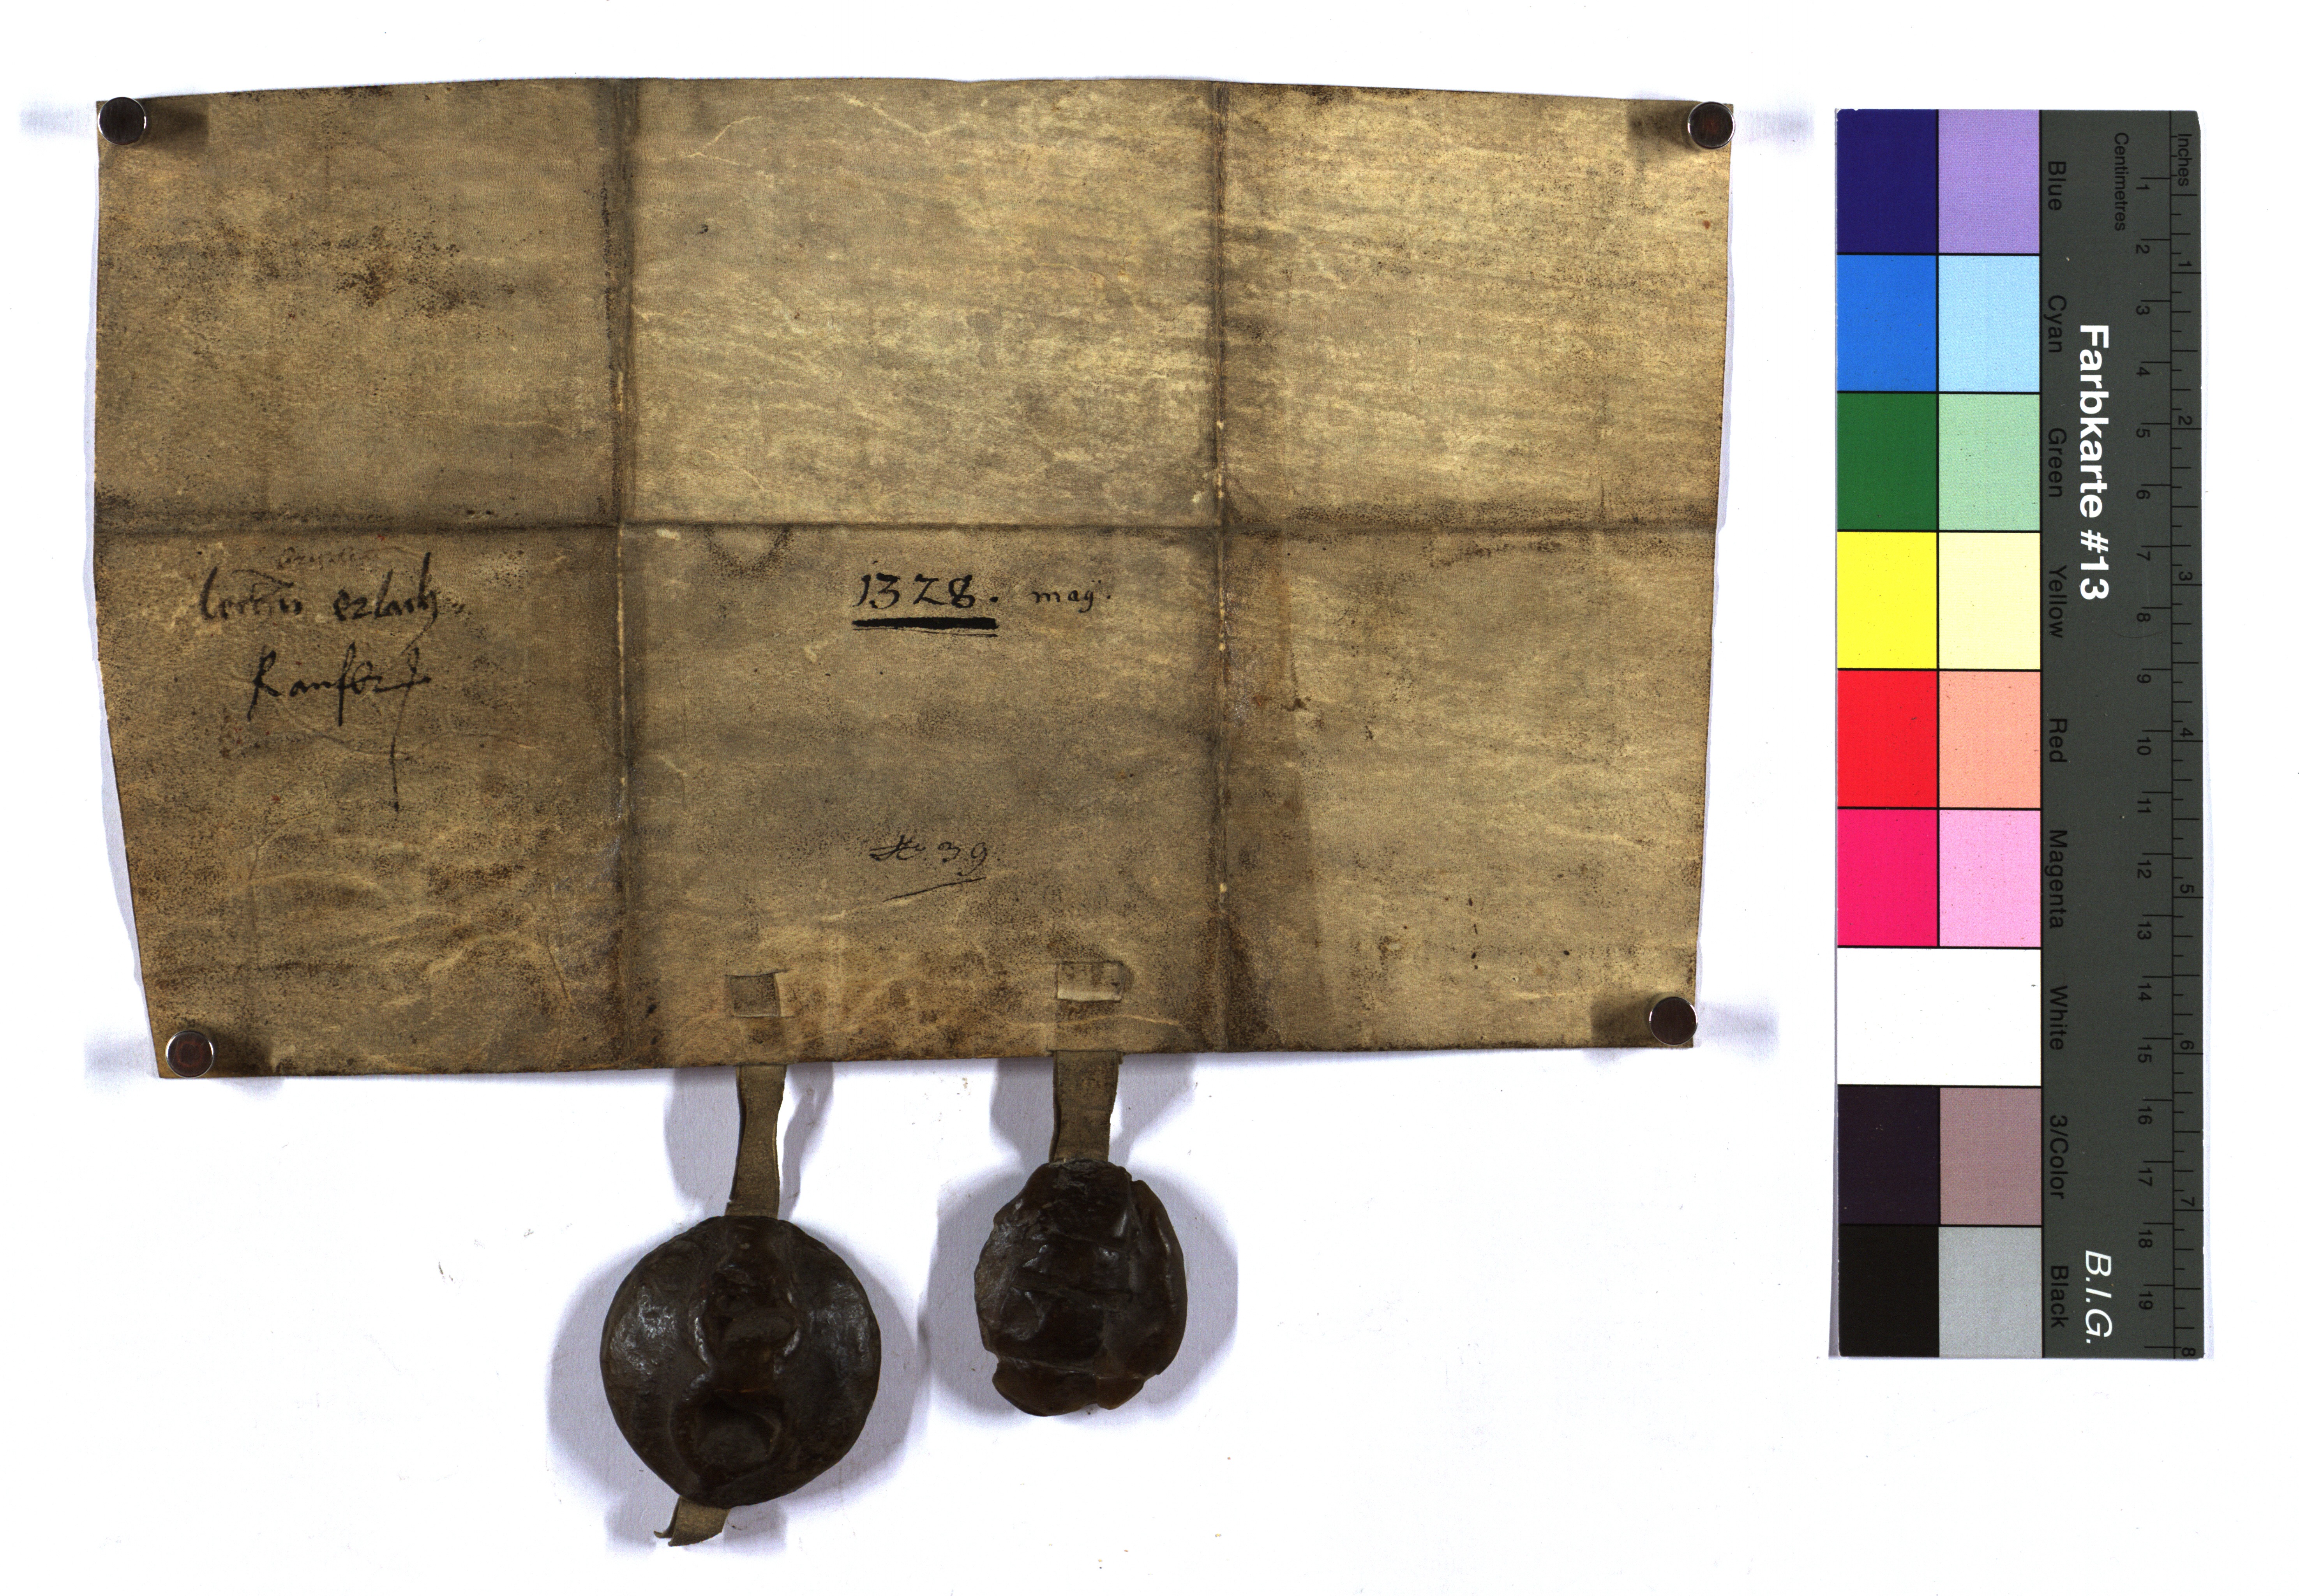 erlach
Kauffbr
1328. mag.
No. 39
Inches
Centimetres
1 2 3 4 5 6 7 8 9 10 11 12 13 14 15 16 17 18 19
1 2 3 4 5 6 7 8
Farbkarte #13
B.I.G.
Blue
Cyan
Green
Yellow
Red
Magenta
White
3/Color
Black